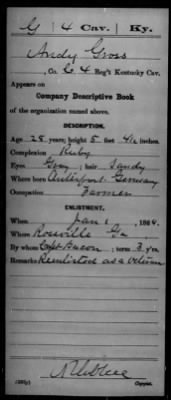 G | 4 Cav. | Ky.
Andy Gross
, Co. G 4 Reg't Kentucky Cav.
Appears on
Company Descriptive Book
of the organization named above.
DESCRIPTION.
Age 28 years; height 5 feet 4½ inches.
Complexion Ruby
Eyes Gray; hair Sandy
Where born Germany
Occupation Farmer
ENLISTMENT.
When Jan 1, 1864.
Where Rossville Ga
By whom Capt Bacon; term 3 y'rs.
Remarks Reenlisted as a Veteran
Copyist.